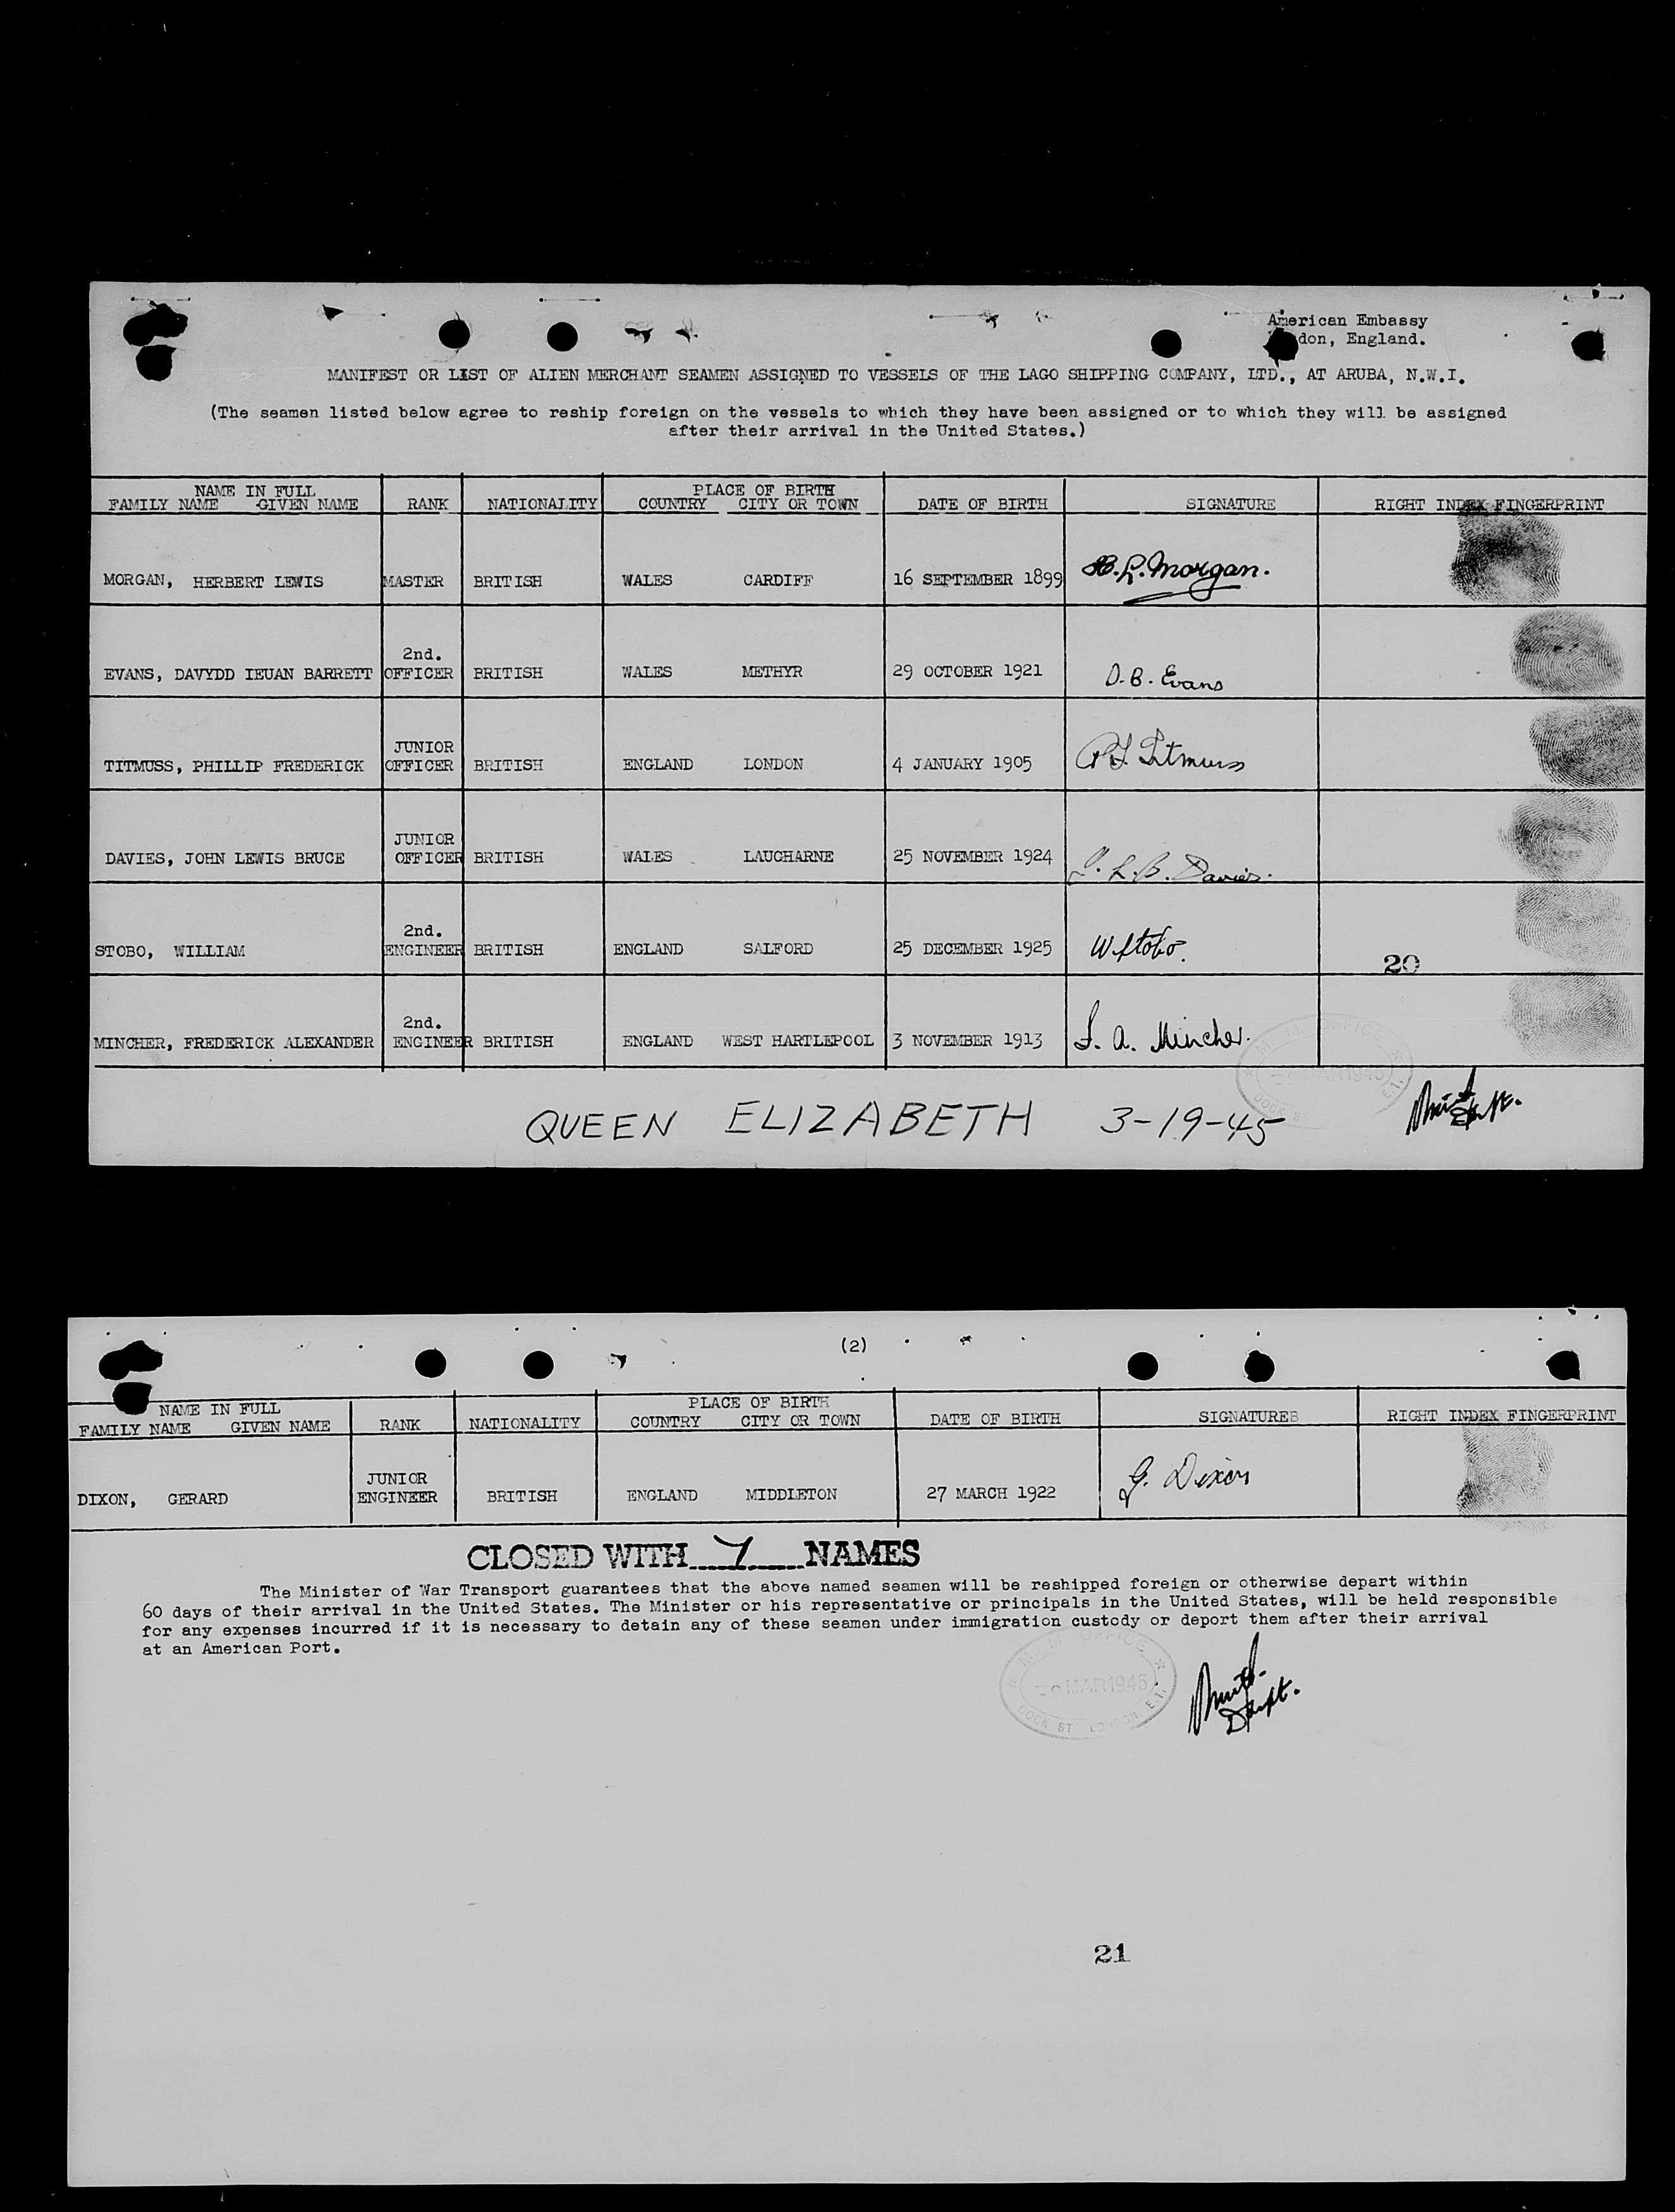 American Embassy
don, England.
MANIFEST OR LIST OF ALIEN MERCHANT SEAMEN ASSIGNED TO VESSELS OF THE LAGO SHIPPING COMPANY, LTD., AT ARUBA, N.W.I.
(The seamen listed below agree to reship foreign on the vessels to which they have been assigned or to which they will be assigned
after their arrival in the United States.)
NAME IN FULL PLACE OF BIRTH
FAMILY NAME GIVEN NAME RANK NATIONALITY COUNTRY CITY OR TOWN DATE OF BIRTH SIGNATURE RIGHT INDEX FINGERPRINT
MORGAN, HERBERT LEWIS MASTER BRITISH WALES CARDIFF 16 SEPTEMBER 1899 H.L. Morgan.
2nd.
EVANS, DAVYDD IEUAN BARRETT OFFICER BRITISH WALES METHYR 29 OCTOBER 1921 D.B. Evans
JUNIOR
TITMUSS, PHILLIP FREDERICK OFFICER BRITISH ENGLAND LONDON 4 JANUARY 1905 P.F. Titmuss
JUNIOR
DAVIES, JOHN LEWIS BRUCE OFFICER BRITISH WALES LAUCHARNE 25 NOVEMBER 1924 J.L.B. Davies.
2nd.
STOBO, WILLIAM ENGINEER BRITISH ENGLAND SALFORD 25 DECEMBER 1925 W Stobo.
20
2nd.
MINCHER, FREDERICK ALEXANDER ENGINEER BRITISH ENGLAND WEST HARTLEPOOL 3 NOVEMBER 1913 F. A. Mincher.
MAR 1945
QUEEN ELIZABETH 3-19-45
(2)
NAME IN FULL PLACE OF BIRTH
FAMILY NAME GIVEN NAME RANK NATIONALITY COUNTRY CITY OR TOWN DATE OF BIRTH SIGNATURES RIGHT INDEX FINGERPRINT
JUNIOR
DIXON, GERARD ENGINEER BRITISH ENGLAND MIDDLETON 27 MARCH 1922 G. Dixon
CLOSED WITH 7 NAMES
The Minister of War Transport guarantees that the above named seamen will be reshipped foreign or otherwise depart within
60 days of their arrival in the United States. The Minister or his representative or principals in the United States, will be held responsible
for any expenses incurred if it is necessary to detain any of these seamen under immigration custody or deport them after their arrival
at an American Port.
OFFICE
MAR 1945
DOCK ST. LONDON E.1.
21